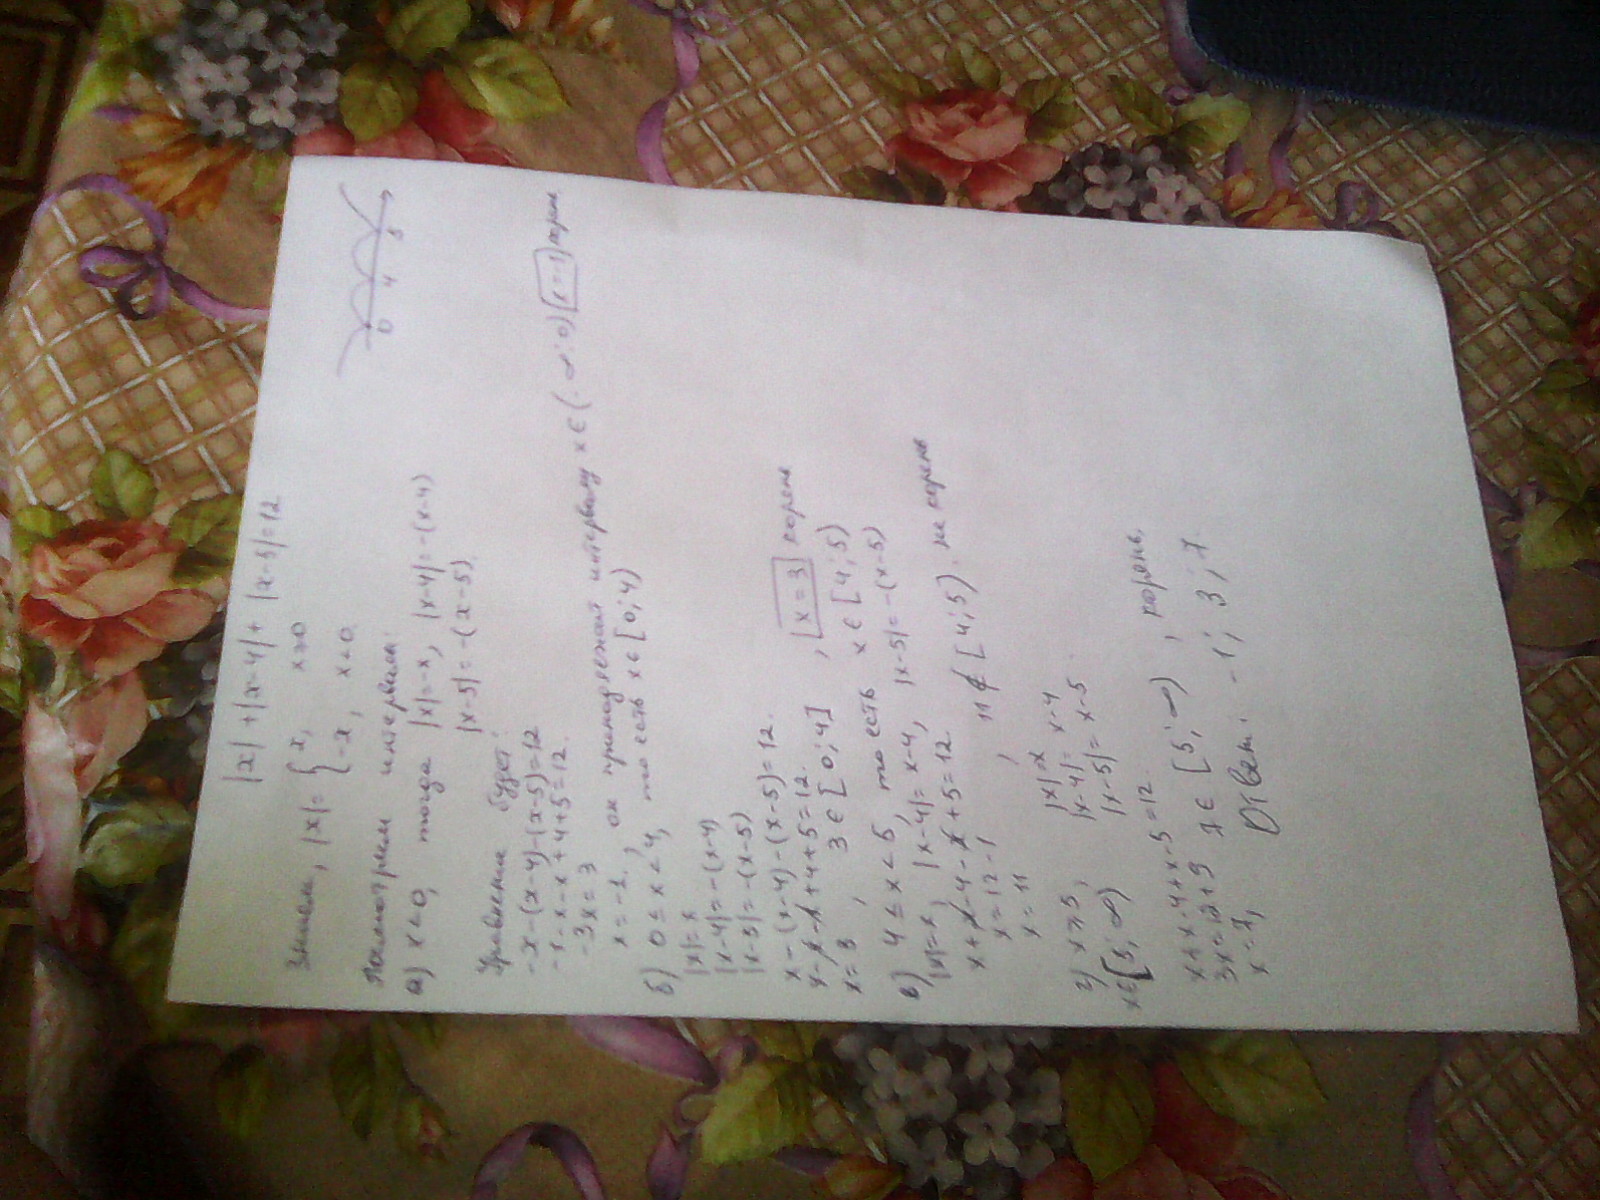 |x| + |x-4| + |x-5| = 12
Знаем, |x| = { x, x≥0
{ -x, x<0.
0 4 5
Рассмотрим интервалы:
а) x<0, тогда |x|=-x, |x-4|=-(x-4)
|x-5|=-(x-5).
Уравнение будет:
-x-(x-4)-(x-5)=12
-x-x-x+4+5=12.
-3x=3
x=-1, он принадлежит интервалу x∈(-∞;0) x=-1 корень.
б) 0≤x<4, то есть x∈[0;4)
|x|=x
|x-4|=-(x-4)
|x-5|=-(x-5)
x-(x-4)-(x-5)=12.
x-x-x+4+5=12.
x=3, 3∈[0;4], x=3 корень
в) 4≤x<5, то есть x∈[4;5)
|x|=x, |x-4|=x-4, |x-5|=-(x-5)
x+x-4-x+5=12.
x=12-1
x=11, 11∉[4;5). не корень
г) x≥5, |x|=x
x∈[5;∞) |x-4|=x-4
|x-5|=x-5.
x+x-4+x-5=12.
3x=12+9
x=7, 7∈[5;∞), корень.
Ответ: -1; 3; 7.